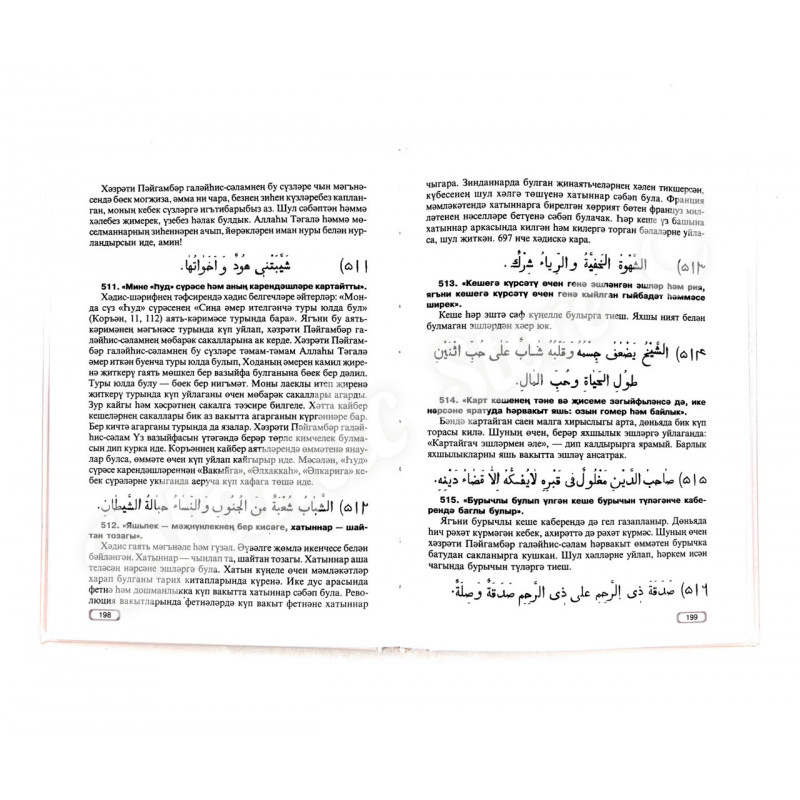 Хәзрәти Пәйгамбәр галәйһис-сәламнең бу сүзләре чын мәгънә-
сендә бөек могҗиза, әмма ни чара, безнең зиһен күзләребез каплан-
ган, моның кебек сүзләргә игътибарыбыз аз. Шул сәбәптән һәммә
хәлебез җимерек, үзебез һәлак булдык. Аллаһы Тәгалә һәммә мө-
селманнарның зиһеннәрен ачып, йөрәкләрен иман нуры белән нур-
ландырсын иде, амин!
٥١١) شَيَّبَتْنِي هُودٌ وَ أَخَوَاتُهَا.
511. «Мине «Һуд» сүрәсе һәм аның карендәшләре картайтты».
Хәдис-шәрифнең тәфсирендә хәдис белгечләре әйтерләр: «Мон-
да сүз «Һуд» сүрәсенең «Сиңа әмер ителгәнчә туры юлда бул»
(Коръән, 11, 112) аять-кәримәсе турында бара». Ягъни бу аять-
кәримәнең мәгънәсе турында күп уйлап, хәзрәти Пәйгамбәр га-
ләйһис-сәламнең мөбарәк сакалларына ак керде. Хәзрәти Пәйгам-
бәр галәйһис-сәламнең бу сүзләре тәмам-тәмам Аллаһы Тәгалә
әмер иткән буенча туры юлда булу. Аның әмерен камил җирe-
нә җиткерү гаять мөшкел бер вазыйфа булганына бөек бер дәлил.
Туры юлда булу — бөек бер нигъмәт. Моны лаеклы итеп җиренә
җиткерү турында күп уйлаганы өчен мөбарәк сакаллары агарды.
Зур кайгы һәм хәсрәтнең сакалга тәэсире билгеле. Хәтта кайбер
кешеләрнең сакаллары бик аз вакытта агарганын күргәннәре бар.
Бер кичтә агарганы турында да язалар. Хәзрәти Пәйгамбәр галәй-
һис-сәлам Үз вазыйфасын үтәгәндә берәр төрле кимчелек булма-
сын дип курка иде. Коръәннең кайбер аятьләрендә өммәтенә янау-
лар булса, өммәте өчен күп уйлап кайгырыр иде. Мәсәлән, «Һуд»
сүрәсе карендәшләреннән «Вакыйга», «Әлхаккаһ», «Әлкарига» ке-
бек сүрәләрне укыганда аеруча күп хафага төшә иде.
٥١٢) الشَّبَابُ شُعْبَةٌ مِنَ الْجُنُونِ وَالنِّسَاءُ حِبَالَةُ الشَّيْطَانِ.
512. «Яшьлек — мәҗнүнлекнең бер кисәге, хатыннар — шай-
тан тозагы».
Хәдис гаять мәгънәле һәм гүзәл. Әүвәлге җөмлә икенчесе белән
бәйләнгән. Хатыннар — чынлап та, шайтан тозагы. Хатын аша
теләсәң нәрсәне эшләргә була. Хатын күңеле өчен мәмләкәтләр
харап булганы тарих китапларында күренә. Ике дус арасында
фетнә һәм дошманлыкка күп вакытта хатыннар сәбәп була. Рево-
люция вакытларында фетнәләрдә күп вакыт фетнәне хатыннар
198
чыгара. Зинданнарда булган җинаятьчеләрнең хәлен тикшерсәң,
күбесенең шул хәлгә төшүенә хатыннар сәбәп була. Франция
мәмләкәтендә хатыннарга бирелгән хөррият бөтен француз мил-
ләтенең нәселләре бетүенә сәбәп булачак. Һәр кеше үз башына
хатыннар аркасында килгән һәм килергә торган бәлаләрне уйла-
са, шул җиткән. 697 нче хәдискә кара.
٥١٣) الشَّهْوَةُ الْخَفِيَّةُ وَ الرِّيَاءُ شِرْكٌ.
513. «Кешегә күрсәтү өчен генә эшләнгән эшләр һәм рия,
ягъни кешегә күрсәтү өчен генә кыйлган гыйбадәт һәммәсе
ширек».
Кеше һәр эштә саф күңелле булырга тиеш. Яхшы ният белән
булмаган эшләрдән хәер юк.
٥١٤) الشَّيْخُ يَضْعُفُ جِسْمُهُ وَ قَلْبُهُ شَابٌّ عَلَى حُبِّ اثْنَيْنِ
طُولُ الْحَيَاةِ وَ حُبُّ الْمَالِ.
514. «Карт кешенең тәне вә җисеме зәгыйфьләнсә дә, ике
нәрсәне яратуда һәрвакыт яшь: озын гомер һәм байлык».
Бәндә картайган саен малга хирыслыгы арта, дөньяда бик күп
торасы килә. Шуның өчен, берәр яхшылык эшләргә уйлаганда:
«Картайгач эшләрмен әле», — дип калдырырга ярамый. Барлык
яхшылыкларны яшь вакытта эшләү ансатрак.
٥١٥) صَاحِبُ الدَّيْنِ مَغْلُولٌ فِي قَبْرِهِ لَا يَفُكُّهُ إِلَّا قَضَاءُ دَيْنِهِ.
515. «Бурычлы булып үлгән кеше бурычын түләгәнче кабе-
рендә баглы булыр».
Ягъни бурычлы кеше каберендә дә гел газапланыр. Дөньяда
һич рәхәт күрмәгән кебек, ахирәттә дә рәхәт күрмәс. Шуның өчен
хәзрәти Пәйгамбәр галәйһис-сәлам һәрвакыт өммәтен бурычка
батудан сакланырга кушкан. Шул хәлләрне уйлап, һәркем исән
чагында бурычын түләргә тиеш.
٥١٦) صَدَقَةُ ذِي الرَّحِمِ عَلَى ذِي الرَّحِمِ صَدَقَةٌ وَصِلَةٌ.
199